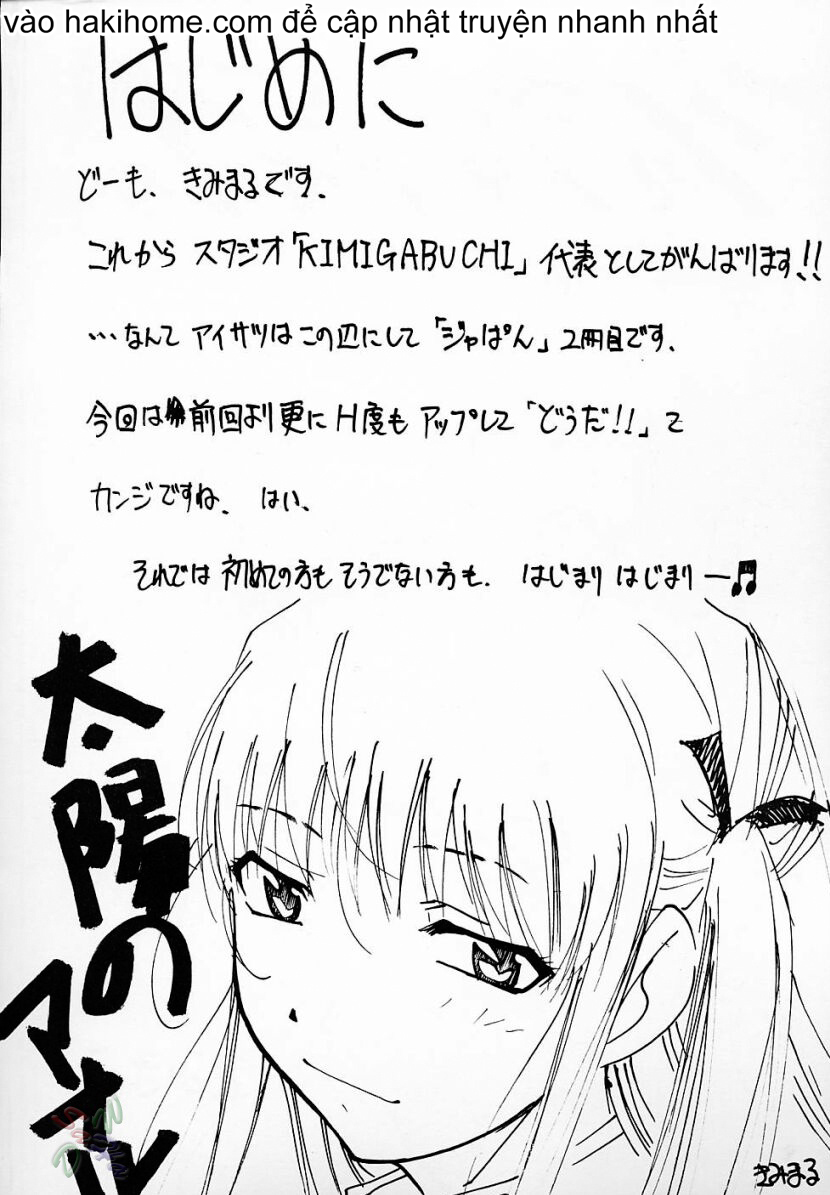 vào hakihome.com để cập nhật truyện nhanh nhất
はじめに
どーも、きみまるです、
これから スタジオ「KIMIGABUCHI」代表としてがんばります!!
…なんて アイサツはこの辺にして「ジャぱん」2冊目です、
今回は前回より更にH度もアップして「どうだ!!」て
カンジですね、 はい、
それでは 初めての方もそうでない方も、 はじまり はじまりー♫
太陽の
マオル
きみまる